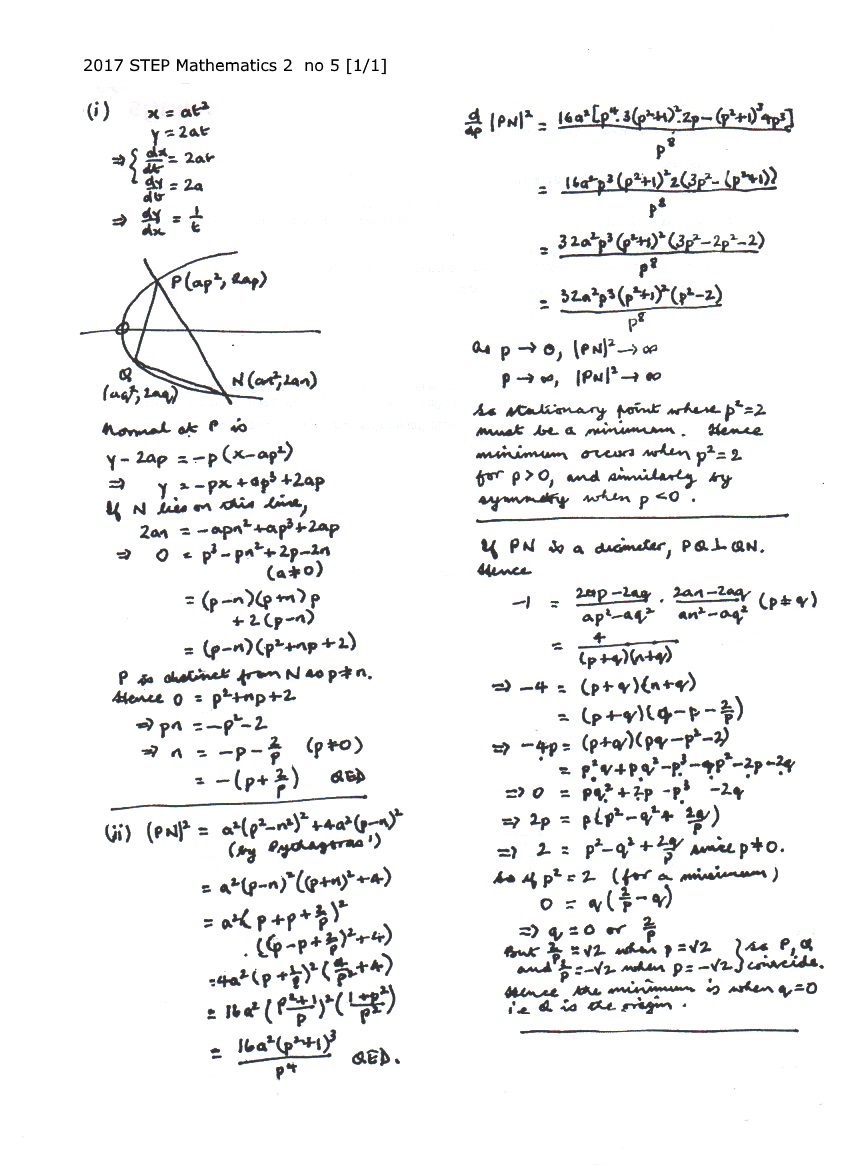 2017 STEP Mathematics 2 no 5 [1/1]
(i) x = at²
y = 2at
⇒ { dx/dt = 2at
dy/dt = 2a
⇒ dy/dx = 1/t
P(ap², 2ap)
O
Q
(aq², 2aq)
N(an², 2an)
Normal at P is
y - 2ap = -p(x-ap²)
⇒ y = -px + ap³ + 2ap
If N lies on this line,
2an = -apn² + ap³ + 2ap
⇒ 0 = p³ - pn² + 2p - 2n
(a ≠ 0)
= (p-n)(p+n)p
+ 2(p-n)
= (p-n)(p²+np+2)
P is distinct from N so p≠n.
Hence 0 = p²+np+2
⇒ pn = -p²-2
⇒ n = -p - 2/p (p≠0)
= -(p + 2/p) QED
(ii) |PN|² = a²(p²-n²)² + 4a²(p-n)²
(by Pythagoras')
= a²(p-n)²((p+n)²+4)
= a²(p+p+2/p)²
.((p-p+2/p)²+4)
= 4a²(p+1/p)²(4/p²+4)
= 16a²((p²+1)/p)²((1+p²)/p²)
= 16a²(p²+1)³/p⁴ QED.
d/dp |PN|² = 16a²[p⁴.3(p²+1)².2p-(p²+1)³4p³]/p⁸
= 16a²p³(p²+1)²2(3p²-(p²+1))/p⁸
= 32a²p³(p²+1)²(3p²-2p²-2)/p⁸
= 32a²p³(p²+1)²(p²-2)/p⁸
as p → 0, |PN|² → ∞
p → ∞, |PN|² → ∞
So stationary point where p²=2
must be a minimum. Hence
minimum occurs when p²=2
for p>0, and similarly by
symmetry when p<0.
If PN is a diameter, PQ⊥QN.
Hence
-1 = (2ap-2aq)/(ap²-aq²) . (2an-2aq)/(an²-aq²) (p≠q)
= 4/((p+q)(n+q))
⇒ -4 = (p+q)(n+q)
= (p+q)(q-p-2/p)
⇒ -4p = (p+q)(pq-p²-2)
= p²q+pq²-p³-qp²-2p-2q
⇒ 0 = pq²+2p-p³-2q
⇒ 2p = p(p²-q²+2q/p)
⇒ 2 = p²-q²+2q/p since p≠0.
So if p²=2 (for a minimum)
0 = q(2/p-q)
⇒ q=0 or 2/p
But 2/p = √2 when p=√2 } so P, Q
and 2/p = -√2 when p=-√2 } coincide.
Hence the minimum is when q=0
i.e Q is the origin.